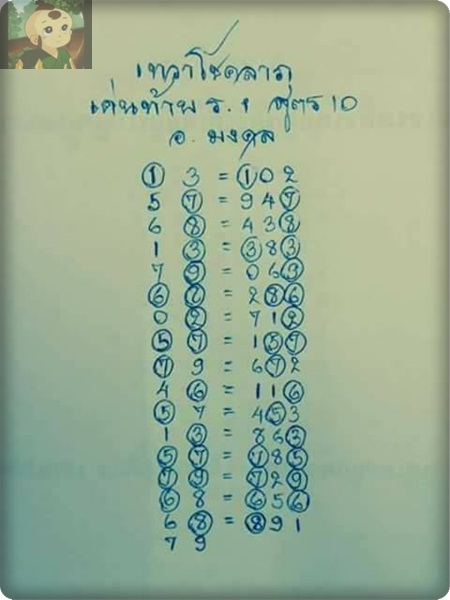 เทวาโชคลาภ
เด่นท้าย ร. 1 สูตร 10
อ. มงคล
1 3 = 102
5 7 = 947
6 8 = 438
1 3 = 383
7 9 = 063
6 8 = 286
0 2 = 712
5 7 = 157
7 9 = 672
4 6 = 116
5 7 = 453
1 3 = 863
5 7 = 785
7 9 = 729
6 8 = 656
6 8 = 891
7 9